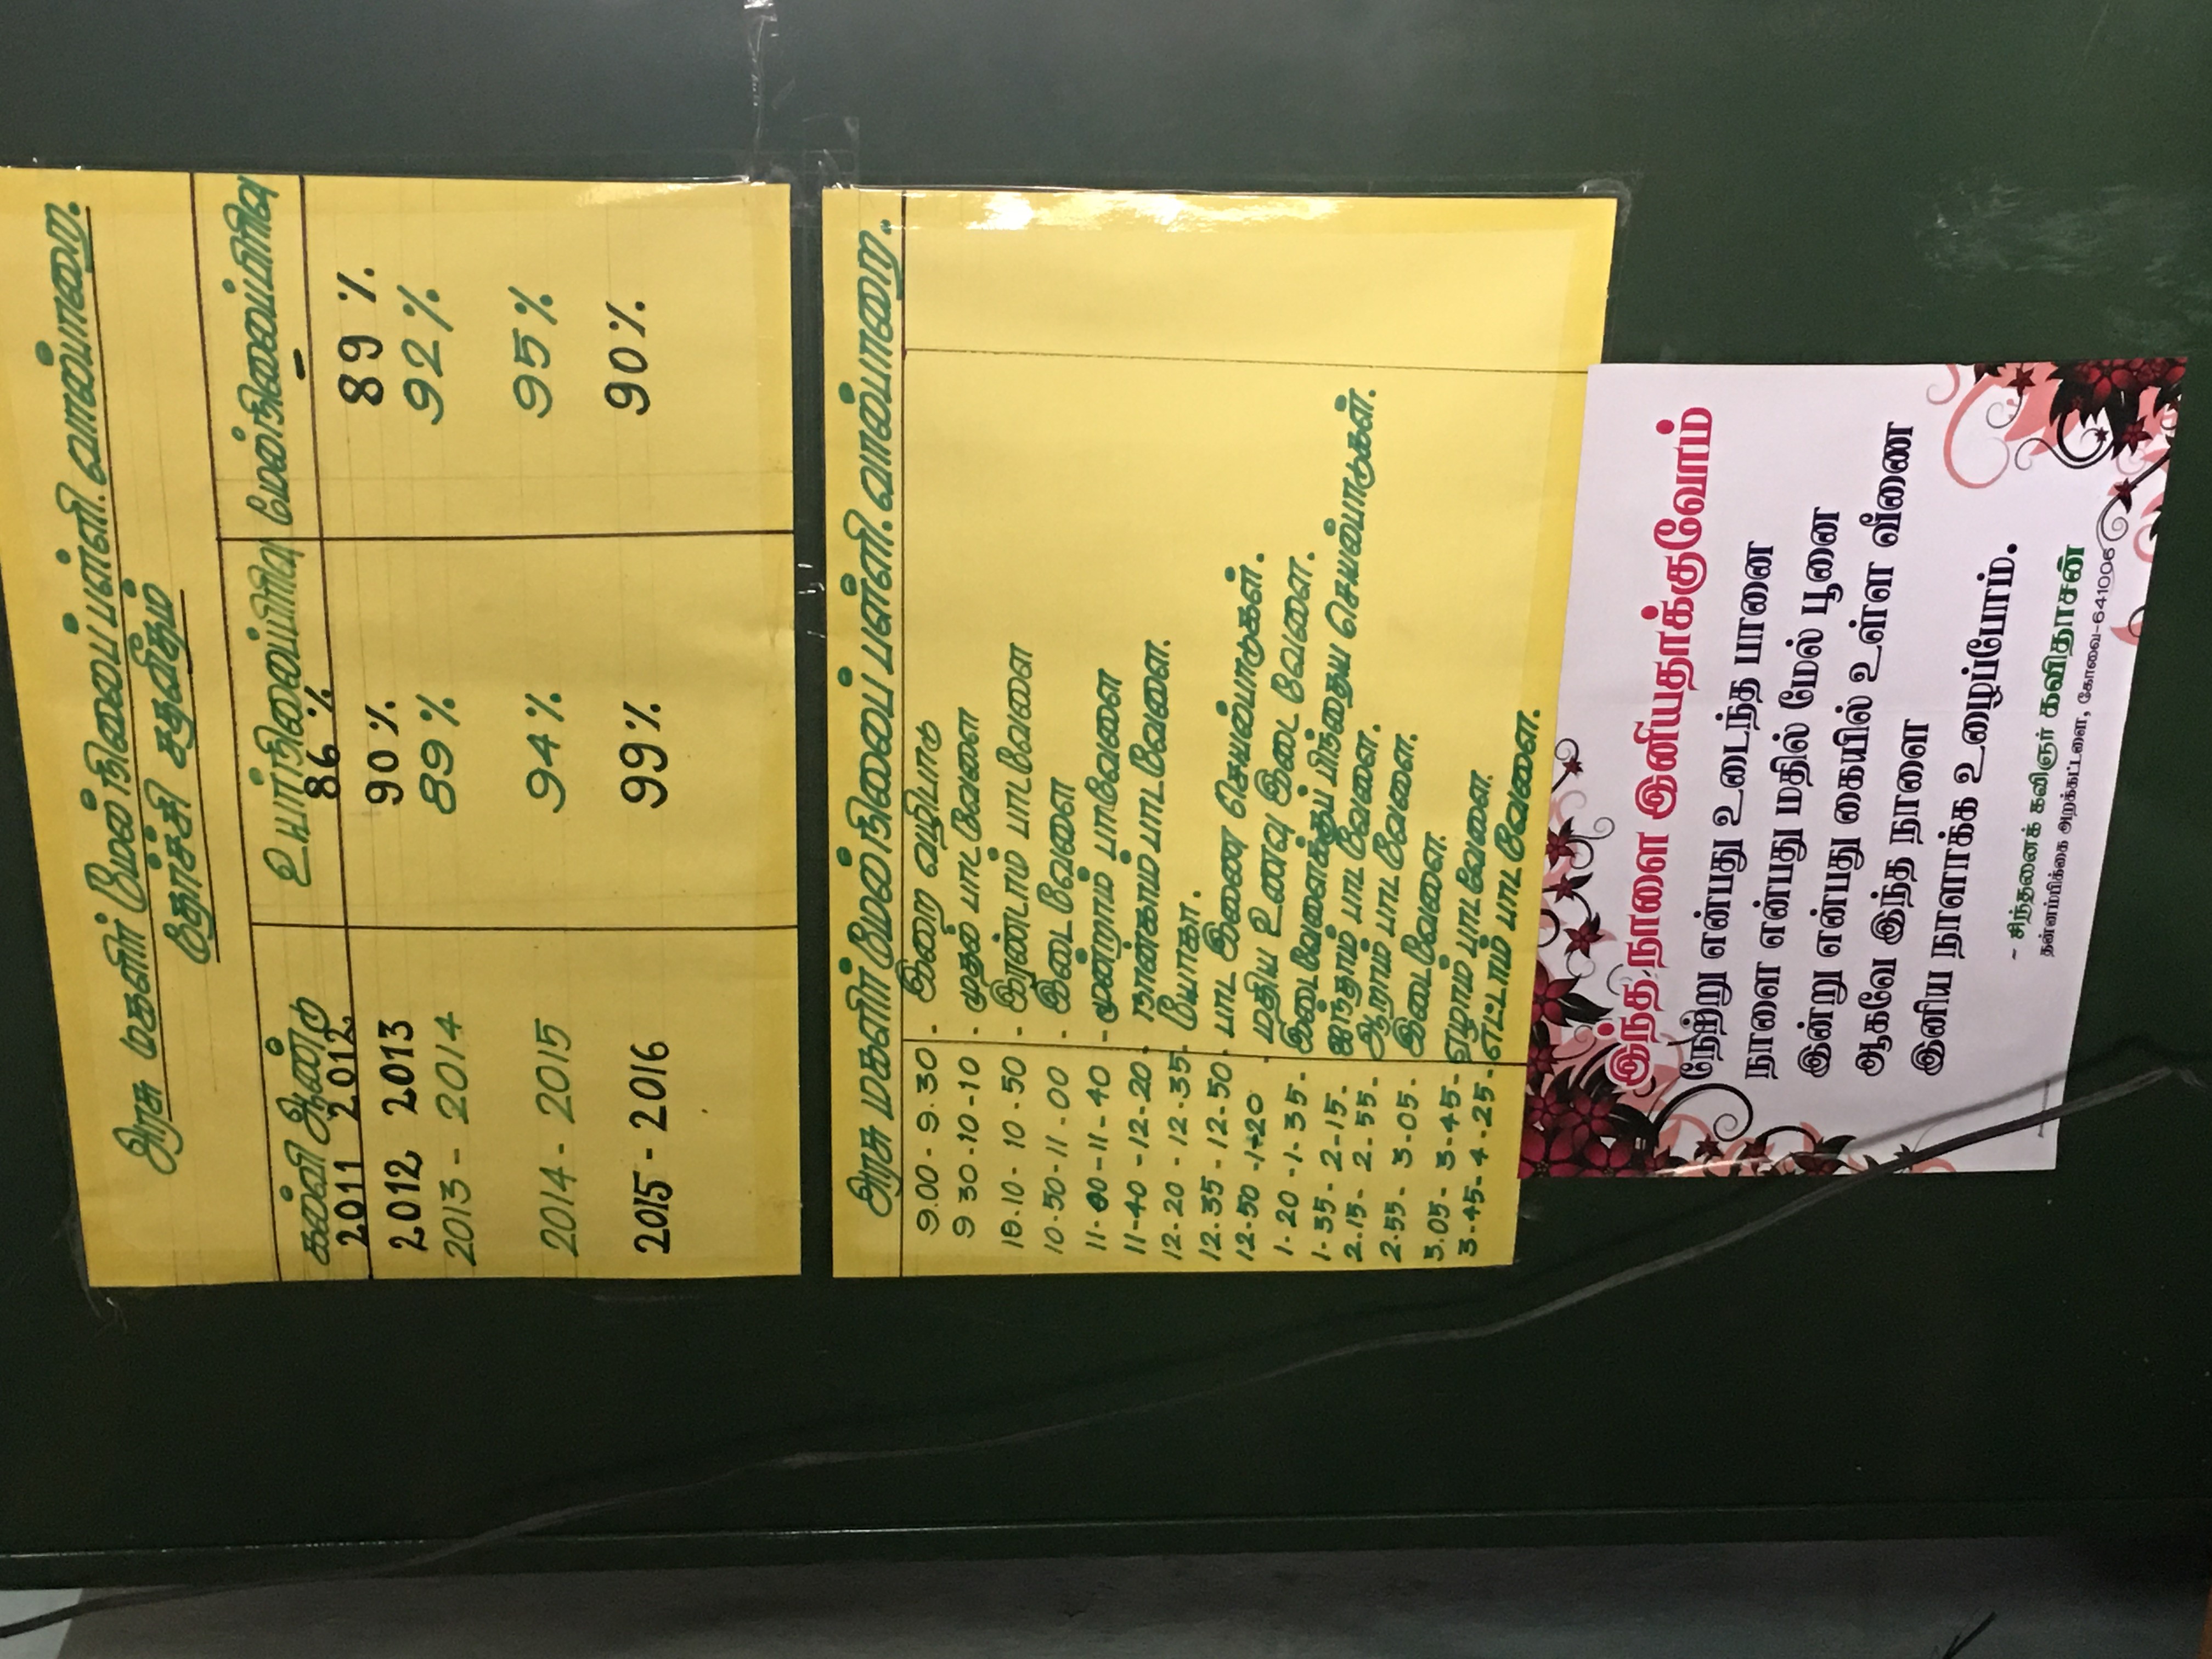 அரசு மகளிர் மேல்நிலைப் பள்ளி. வால்பாறை.
தேர்ச்சி சதவீதம்
கல்வி ஆண்டு உயர்நிலைப்பிரிவு மேல்நிலைப்பிரிவு
2011 2012 86 %
2012 2013 90 % 89 %
2013 - 2014 89 % 92 %
2014 - 2015 94 % 95 %
2015 - 2016 99 % 90 %
அரசு மகளிர் மேல்நிலைப் பள்ளி. வால்பாறை.
9.00 - 9.30 - இறை வழிபாடு
9 30 - 10 - 10 - முதல் பாடவேளை
10 - 10 - 10 - 50 - இரண்டாம் பாடவேளை
10 - 50 - 11 - 00 - இடைவேளை
11 - 00 - 11 - 40 - மூன்றாம் பாவேளை
11-40 - 12-20 - நான்காம் பாடவேளை.
12-20 - 12-35 - யோகா.
12.35 - 12-50 - பாட இணை செயல்பாடுகள்.
12-50 -1-20 - மதிய உணவு இடைவேளை.
1-20 -1-35 - இடைவேளைக்குப் பிந்தைய செயல்பாடுகள்.
1-35 - 2-15 - ஐந்தாம் பாடவேளை.
2.15 - 2-55 - ஆறாம் பாடவேளை.
2-55 - 3-05 - இடைவேளை.
3.05 - 3-45 - ஏழாம் பாடவேளை.
3-45 - 4-25 - எட்டாம் பாடவேளை.
இந்த நாளை இனியதாக்குவோம்
நேற்று என்பது உடைந்த பானை
நாளை என்பது மதில் மேல் பூனை
இன்று என்பது கையில் உள்ள வீணை
ஆகவே இந்த நாளை
இனிய நாளாக்க உழைப்போம்.
~ சிந்தனைக் கவிஞர் கவிதாசன்
தன்னம்பிக்கை அறக்கட்டளை, கோவை-641006